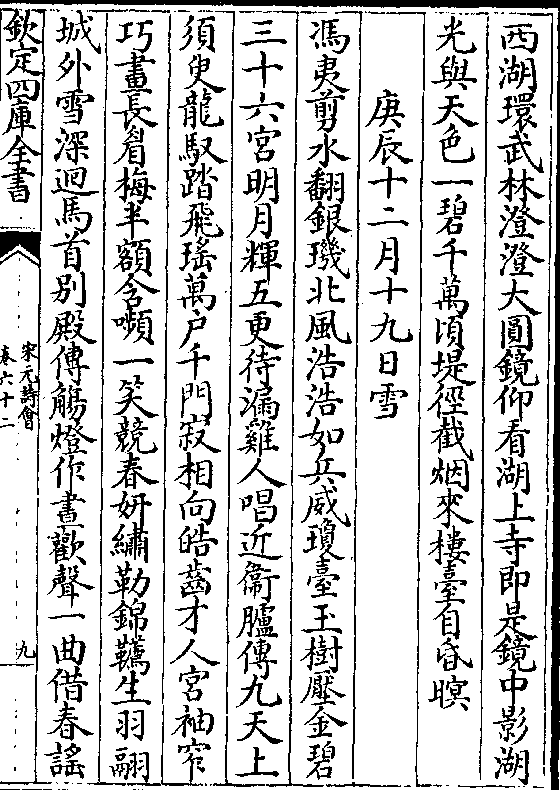 西湖環武林澄澄大圓鏡仰看湖上寺即是鏡中影湖
光與天色一碧千萬頃堤徑截烟來樓臺自昏暝
庚辰十二月十九日雪
馮夷剪水翻銀璣北風浩浩如兵威瓊臺玉樹壓金碧
三十六宮明月輝五更待漏雞人唱近衞臚傳九天上
須臾龍馭踏飛瑤萬户千門寂相向皓齒才人宮袖窄
巧畫長眉梅半額含嚬一笑競春妍繡勒錦韉生羽翮
城外雪深迴馬首別殿傳觴燈作晝歡聲一曲借春謠
欽定四庫全書
宋元詩會
卷六十二
九